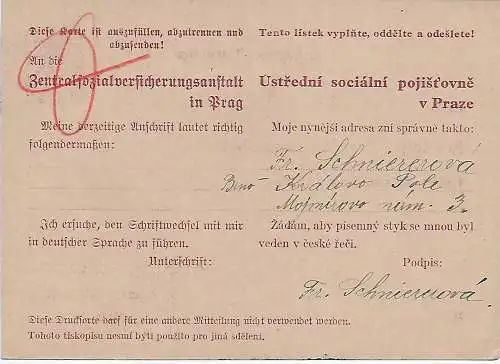 Diese Karte ist auszufüllen, abzutrennen und abzusenden!
An die
Zentralsozialversicherungsanstalt
in Prag
Meine derzeitige Anschrift lautet richtig
folgendermaßen:
Ich ersuche, den Schriftwechsel mit mir
in deutscher Sprache zu führen.
Unterschrift:
Tento lístek vyplňte, oddělte a odešlete!
Ústřední sociální pojišťovně
v Praze
Moje nynější adresa zní správně takto:
Fr. Schniererová
Brno Královo Pole
Mojmírovo nám. 3.
Žádám, aby písemný styk se mnou byl
veden v české řeči.
Podpis:
Fr. Schniererová
Diese Drucksorte darf für eine andere Mitteilung nicht verwendet werden.
Tohoto tiskopisu nesmí býti použito pro jiná sdělení.